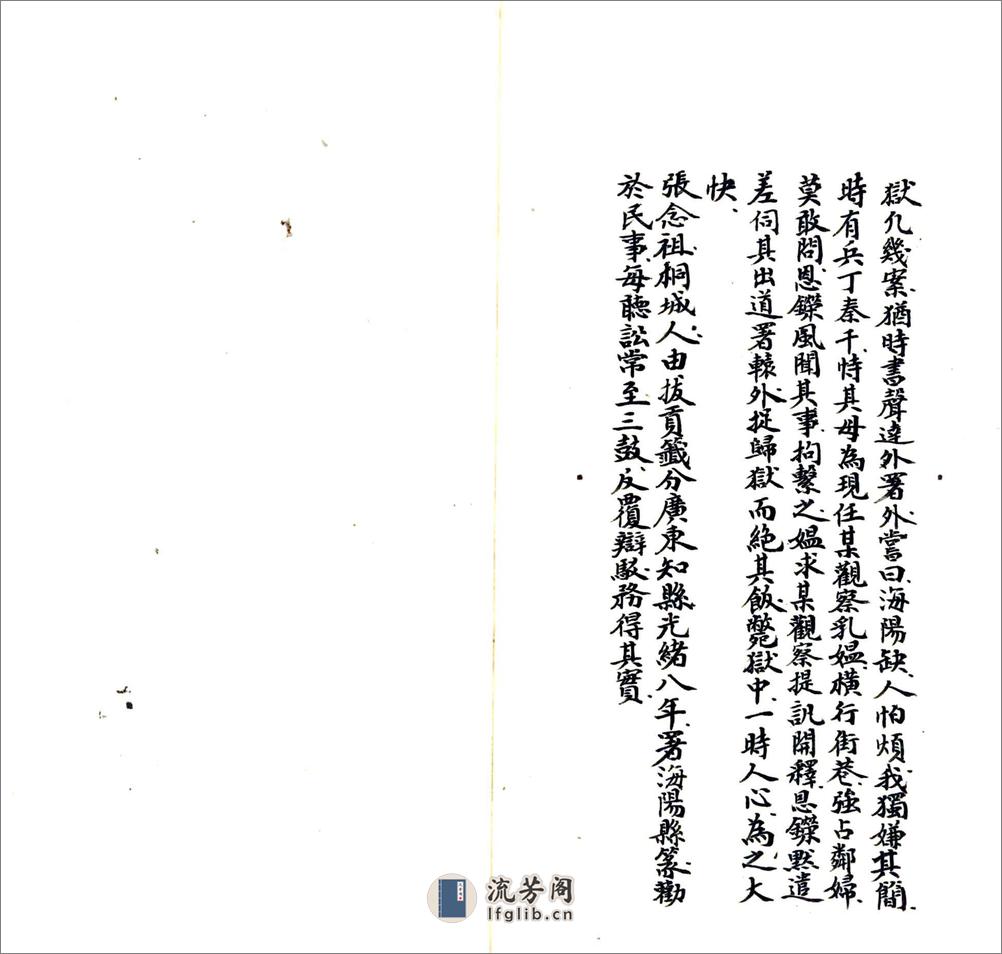 獄凡幾案、猶時書聲達外署外、嘗曰、海陽缺、人怕煩、我獨嫌其簡、
時有兵丁秦千、恃其母為現任某觀察乳媼、橫行街巷、強占鄰婦、
莫敢問、恩鑅風聞其事、拘繫之、媼求某觀察提訊開釋、恩鑅默遣
差伺其出道署轅外、捉歸獄而絕其飯、斃獄中、一時人心為之大
快、
張念祖、桐城人、由拔貢籤分廣東知縣、光緒八年、署海陽縣篆、勤
於民事、每聽訟常至三鼓、反覆辯駁、務得其實、
流芳阁
lfglib.cn